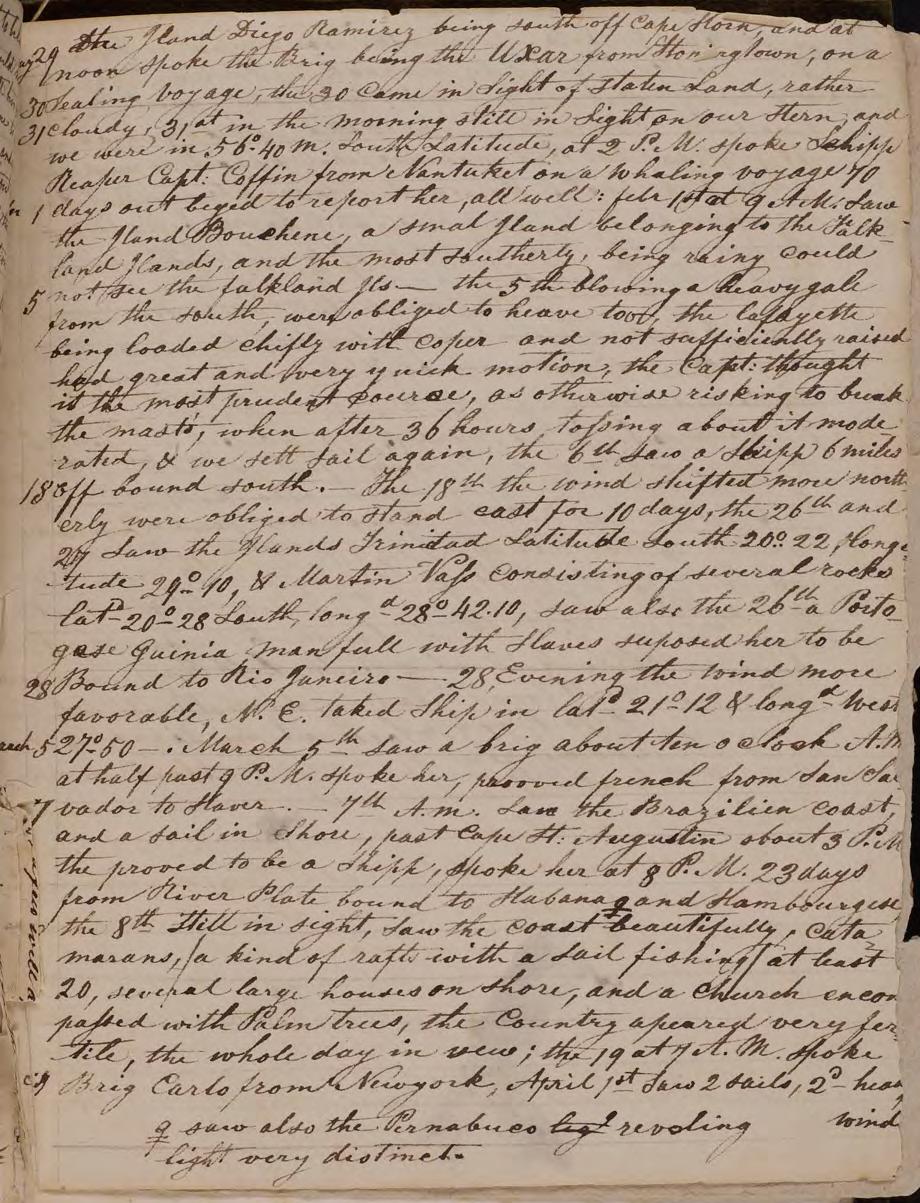 the Jland Diego Ramirez being south off Cape Horn, and at
29 noon spoke the Brig being the Uxar, from Stoningtown, on a
30 Sealing voyage, the 30 Came in Sight of Staten Land, rather
31 cloudy, 31 at in the morning still in Sight on our Stern, and
we were in 56º 40 m. South Latitude, at 2 P.M. spoke Schipp
Reaper Capt: Coffin from Nantuket on a Whaling voyage 70
1 days out beged to report her, all well: febr 1st at 9 A.M. Saw
the Jland Bouchene, a smal Jland belonging to the Falk-
land Jlands, and the most southerly, being rainy could
5 not see the falkland Jls — the 5th blowing a heavy gale
from the south, were obliged to heave too, the lafayette
being loaded chifly with coper and not sufficiently raised
had great and very quick motion, the Capt: thought
it the most prudent course, as otherwise risking to break
the masts, when after 36 hours tossing about it mode
rated, & we sett sail again, the 6th saw a Shipp 6 miles
18 off bound south. — The 18th the wind shifted more north
erly were obliged to stand east for 10 days, the 26th and
27 Saw the Jlands Trinidad Latitude South 20º 22, Longi-
tude 29º 10, & Martin Vass consisting of several rocks
latd 20º 28 South, longd 28º 42.10, saw also the 26th a Porto
gese Guinia man full with Slaves suposed her to be
28 Bound to Rio Janeiro — 28, Evening the wind more
favorable, N. E. taked Ship in latd 21º 12 & longd West
5 27º 50 — . March 5th saw a brig about ten o clock A.M
at half past 9 P.M. spoke her, prooved french from San Sal
7 vador to Haver. — 7th A.m. Saw the Brazilien coast,
and a sail in shore, past Cape St: Augustin about 3 P.M
the proved to be a Shipp, spoke her at 8 P.M. 23 days
from River Plate bound to Habana ϙ and Hambourgese
the 8th still in sight, saw the coast beautifully, cata
marans, (a kind of rafts with a sail fishing) at least
20, several large houses on shore, and a Church encom
passed with Palm trees, the Country apeared very fer-
tile, the whole day in vew; the 19 at 7 A.M. spoke
Brig Carlo from Newyork, April 1st Saw 2 sails, 2d head
wind
ϙ saw also the Pernabuco ligt revoling
light very distinct.